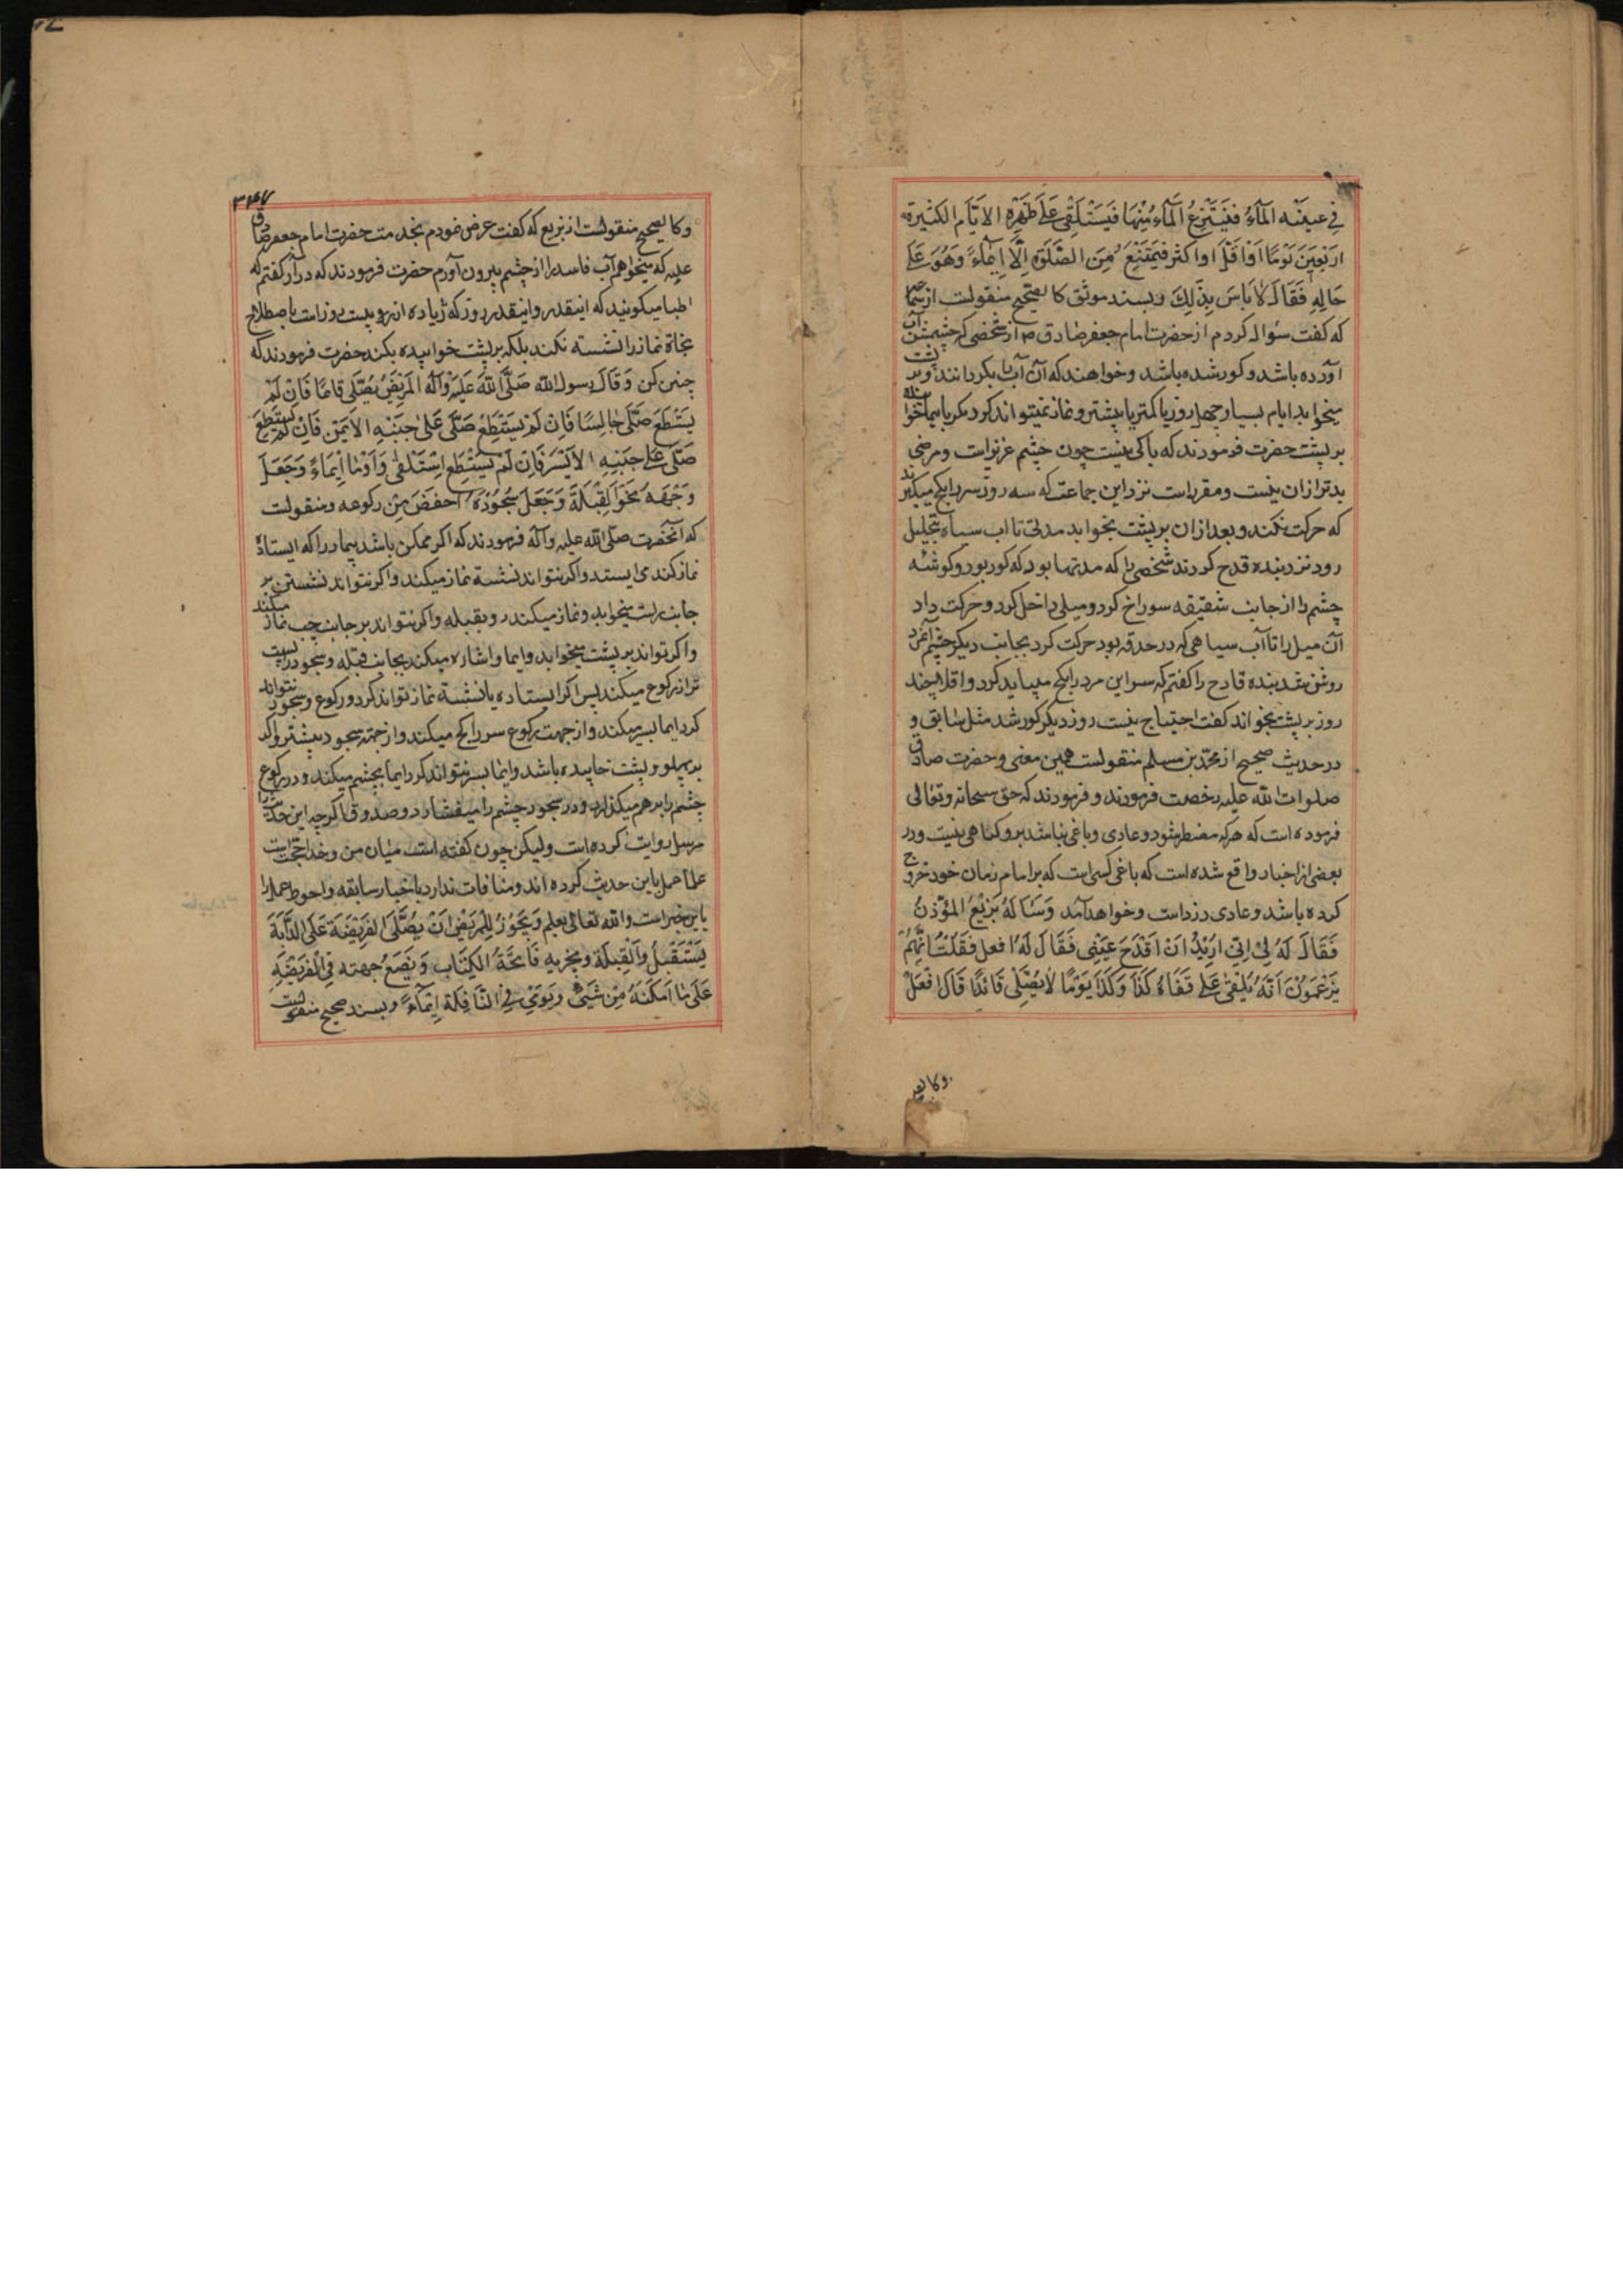 في عينه المآءُ فَيَنْتَزِعُ المآء مِنْهَا فَيَسْتَلْقِي عَلَى ظَهْرِهِ الايَّام الكثيرة
اربَعِينَ يَوْمًا اَوْ اَقَلَّ او اكثر فيَمْتَنِعُ مِنَ الصَّلوةِ اِلَّا اِيمَآءً وَهُوَ عَلَى
حَالِهِ فَقَالَ لا بَاسَ بِذَلِكَ و بسند موثق کا لصّحیح منقولست از سماعه
که کفت سؤال کردم از حضرت امام جعفر صادق ص از شخصی که چشمش آب
آورده باشد و کور شده باشد و خواهند که آن آب را بکردانند و بر پشت
میخوابد ایام بسیار چهل روز یا کمتر یا بیشتر و نماز نمیتواند کرد مکر بایما
بر پشت حضرت فرمودند که باکی نیست چون چشم عزیز است و مرضی
بدتر از ان نیست و مقرر است نزد این جماعت که سه روز سر را بکچ میکیرند
که حرکت نکند و بعد از ان بر پشت بخوابد مدتی تا اب سیاه بتحلیل
رود نزد بنده قدح کردند شخصی را که مدتها بود که کور بود و کوشئه
چشم را از جانب شقیقه سوراخ کرد و میلی داخل کرد و حرکت داد
آن میل را تا آب سیاهی که در حدقه بود حرکت کرد بجانب دیکر چشم آنمرد
روشن شد بنده قادح را کفتم که سر این مرد را بکچ میباید کرد و اقلا چند
روز بر پشت بخواند کفت احتیاج نیست روز دیکر کور شد مثل سابق و
در حدیث صحیح از محمّد بن مسلم منقولست همین معنی و حضرت صادق
صلوات الله علیه رخصت فرمودند و فرمودند که حق سبحانه و تعالی
فرموده است که هر که مضطر شود و عادی و باغی نباشد بر و کناهی نیست و در
بعضی از اخبار واقع شده است که باغی کسی است که بر امام زمان خود خروج
کرده باشد و عادی دزد است و خواهد آمد وَسَالَهُ بَزِيْعُ المُؤَذِّنُ
فَقَالَ لَهُ اِنِّي اُرِيْدُ اَنْ اَقْدَحَ عَيْنِي فَقَالَ لَهُ افعل فَقُلْتُ اِنَّهُمْ
يَزْعَمُوْنَ اَنَّهُ يُلْقٰى عَلَى قَفَاهُ كَذَا وَكَذَا يَوْمًا لَا يُصَلِّى قَائدًا قَالَ افْعَلْ
و کا لصحیح
۳۴۷
و کا لصحیح منقولست از بزیع که کفت عرض نمودم بخدمت حضرت امام جعفر صادق
علیه که میخواهم آب فاسد را از چشم بیرون آورم حضرت فرمودند که در آر کفتم که
اطبا میکویند که اینقدر و اینقدر روز که زیاده از بیست روز است باصطلاح
نماز را نشسته نکند بلکه بر پشت خوابیده بکند حضرت فرمودند که
چنین کن وَقَالَ رسول الله صَلَّى اللهُ عَلَيْهِ وَآلَه المَرِيْضُ يُصَلّى قائمًا فَاِنْ لَمْ
يَسْتَطِعْ صَلّى جَالِسًا فَاِنْ لَمْ يَسْتَطِعْ صَلَّى عَلى جَنْبِهِ الاَيْمَنِ فَاِنْ لَمْ يَسْتَطِعْ
صَلَّى عَلَى جَنْبِهِ الاَيْسَرِ فَاِنْ لَمْ يَسْتَطِعِ اسْتَلْقٰى وَاَوْمَا اِيْمَاءً وَجَعَلَ
وَجْهَهُ نَحْوَ القِبْلَةِ وَجَعَلَ سُجُوْدَهُ اخفَضَ مِنْ رکوعه و منقولست
که آنحضرت صلّى الله عليه وآله فرمودند که اکر ممکن باشد بیمار را که ایستاده
نماز کند می ایستد و اکر نتواند نشسته نماز میکند و اکر نتواند نشستن بر
جانب راست میخوابد و نماز میکند رو بقبله و اکر نتواند بر جانب چپ نماز میکند
و اکر نتواند بر پشت میخوابد و ایما و اشاره میکند بجانب قبله و سجود را پست
تر از رکوع میکند پس اکر ایستاده یا نشسته نماز تواند کرد و رکوع و سجود نتواند
کرد ایما بسر میکند و از جهت رکوع سر را کج میکند و از جهته سجود بیشتر و اکر
بر پهلو و پشت خابیده باشد و ایما بسر نتواند کرد ایما بچشم میکند و در رکوع
چشم را بر هم میکذارد و در سجود چشم را میفشارد و صدوق اکرچه این حدیث را
مرسل روایت کرده است ولیکن چون کفته است میان من و خدا حجّت است
علما عمل باین حدیث کرده اند و منافات ندارد با خبار سابقه و احوط عمل را
باین خبر است والله تعالى يعلم وَيَجُوْزُ لِلْمَرِيْضِ اَنْ يُصَلّىَ الفَرِيْضَةَ عَلَى الدَّابَةِ
يَسْتَقْبِلُ وَالْقِبْلَةَ ويجزيهِ فَاتِحَةُ الكِتَابِ وَيَضَعُ جبهته فِي الْفَرِيْضَةِ
عَلَى مَا اَمْكَنَهُ مِنْ شَئٍ وَيُوْمِى فِي النَّافِلَةِ اِيْمَآءً و بسند صحیح منقولست